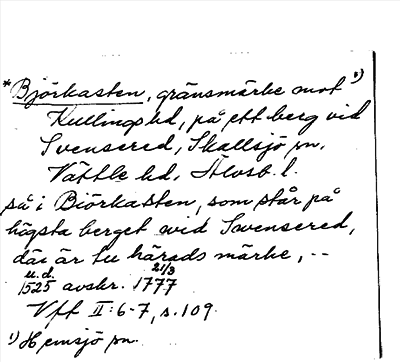 *Björkasten, gränsmärke mot ¹)
Kullings hd, på ett berg vid
Svensered, Skallsjö sn.
Vättle hd, Älvsb. l.
så i Biörkasten, som står på
högsta berget wid Swensered,
där är tu härads märke, --
u.d. 21/3
1525 avskr. 1777
Vff II:6-7, s.109.
¹) Hemsjö sn.